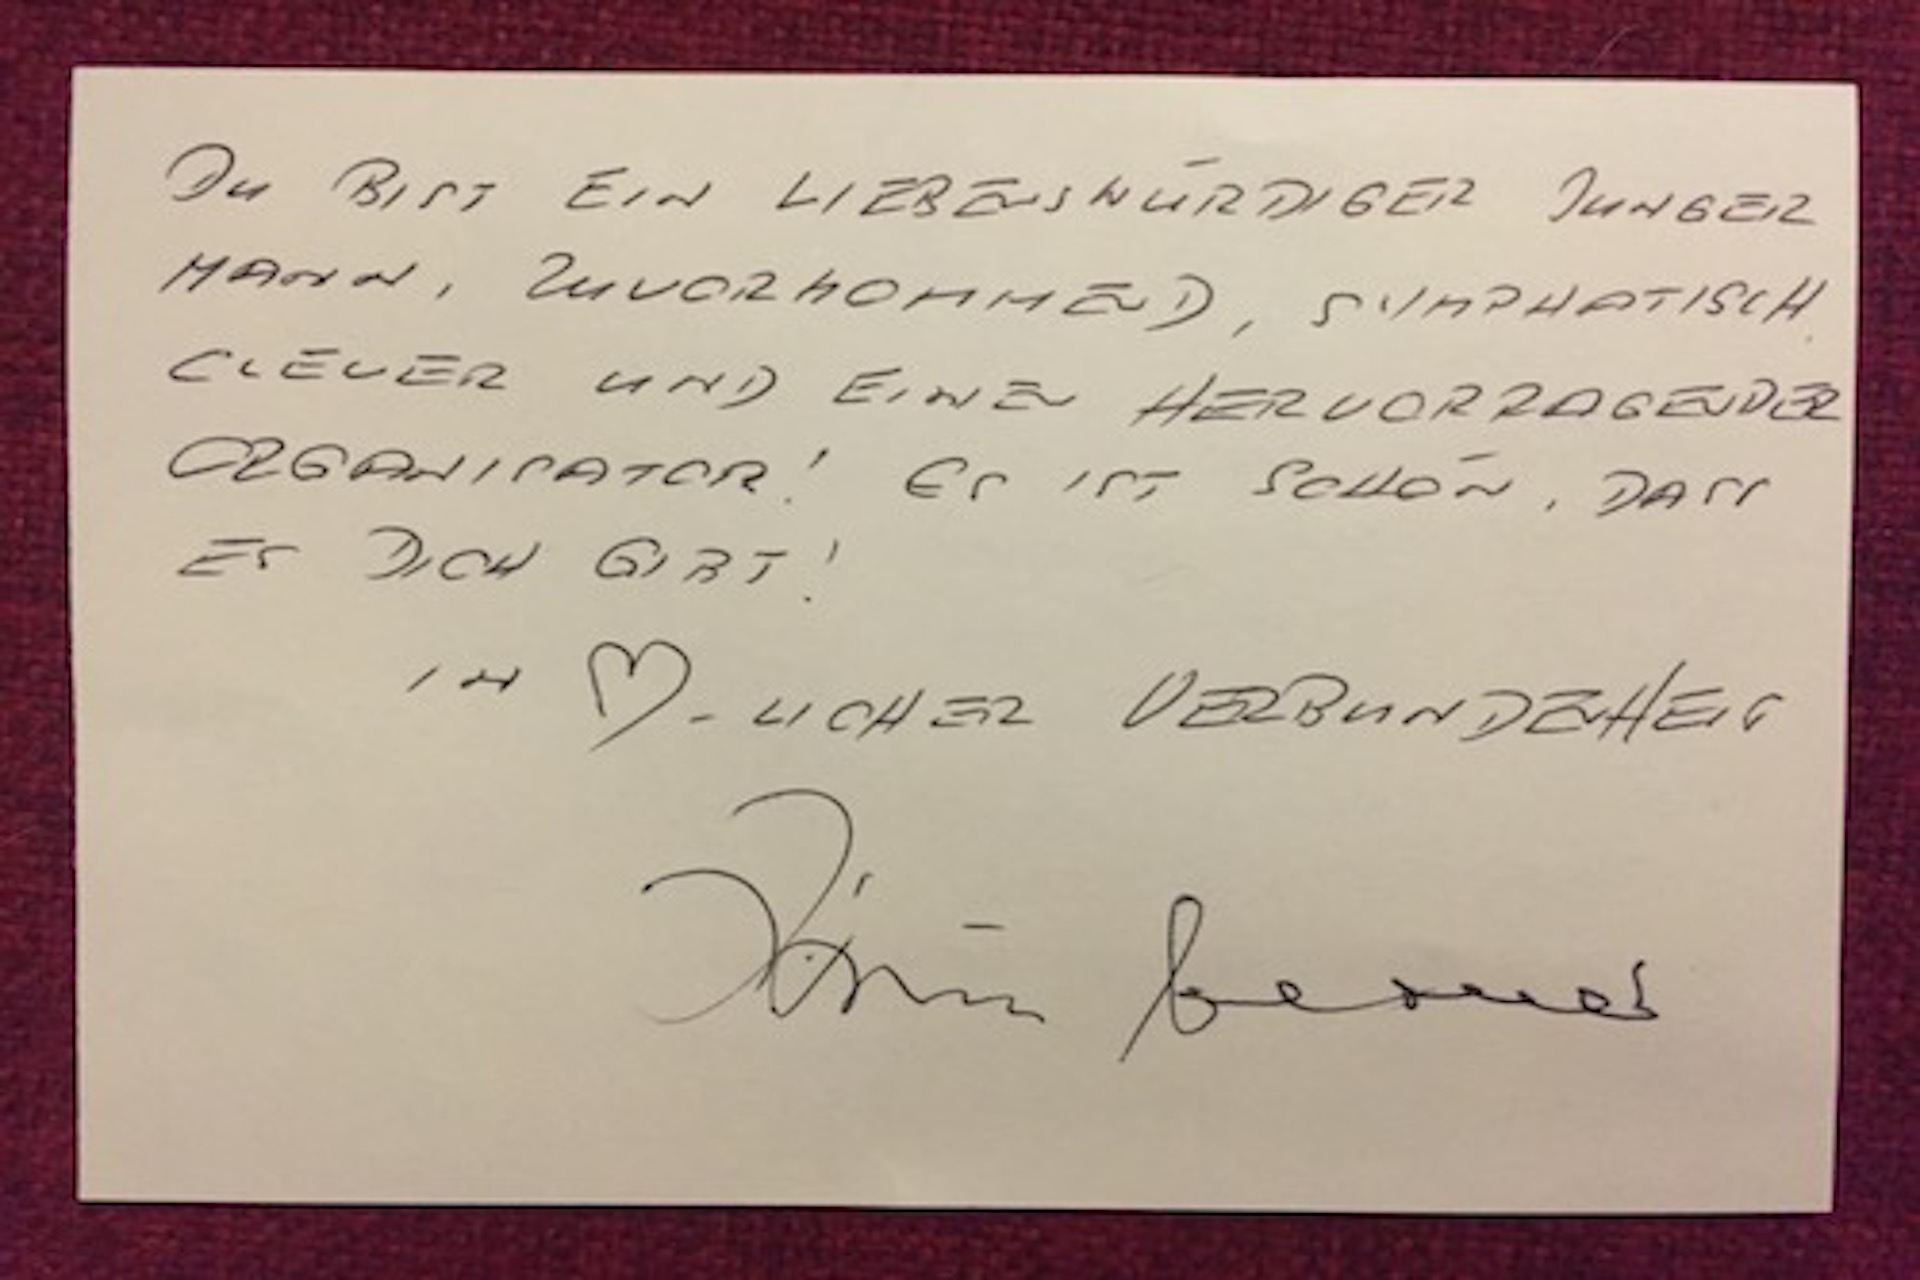 Du BIST EIN LIEBENSWÜRDIGER JUNGER
MANN, ZUVORKOMMEND, SYMPHATISCH,
CLEVER UND EINEN HERVORRAGENDER
ORGANISATOR! ES IST SCHÖN, DASS
ES DICH GIBT!
IN ♡-LICHER VERBUNDENHEIT